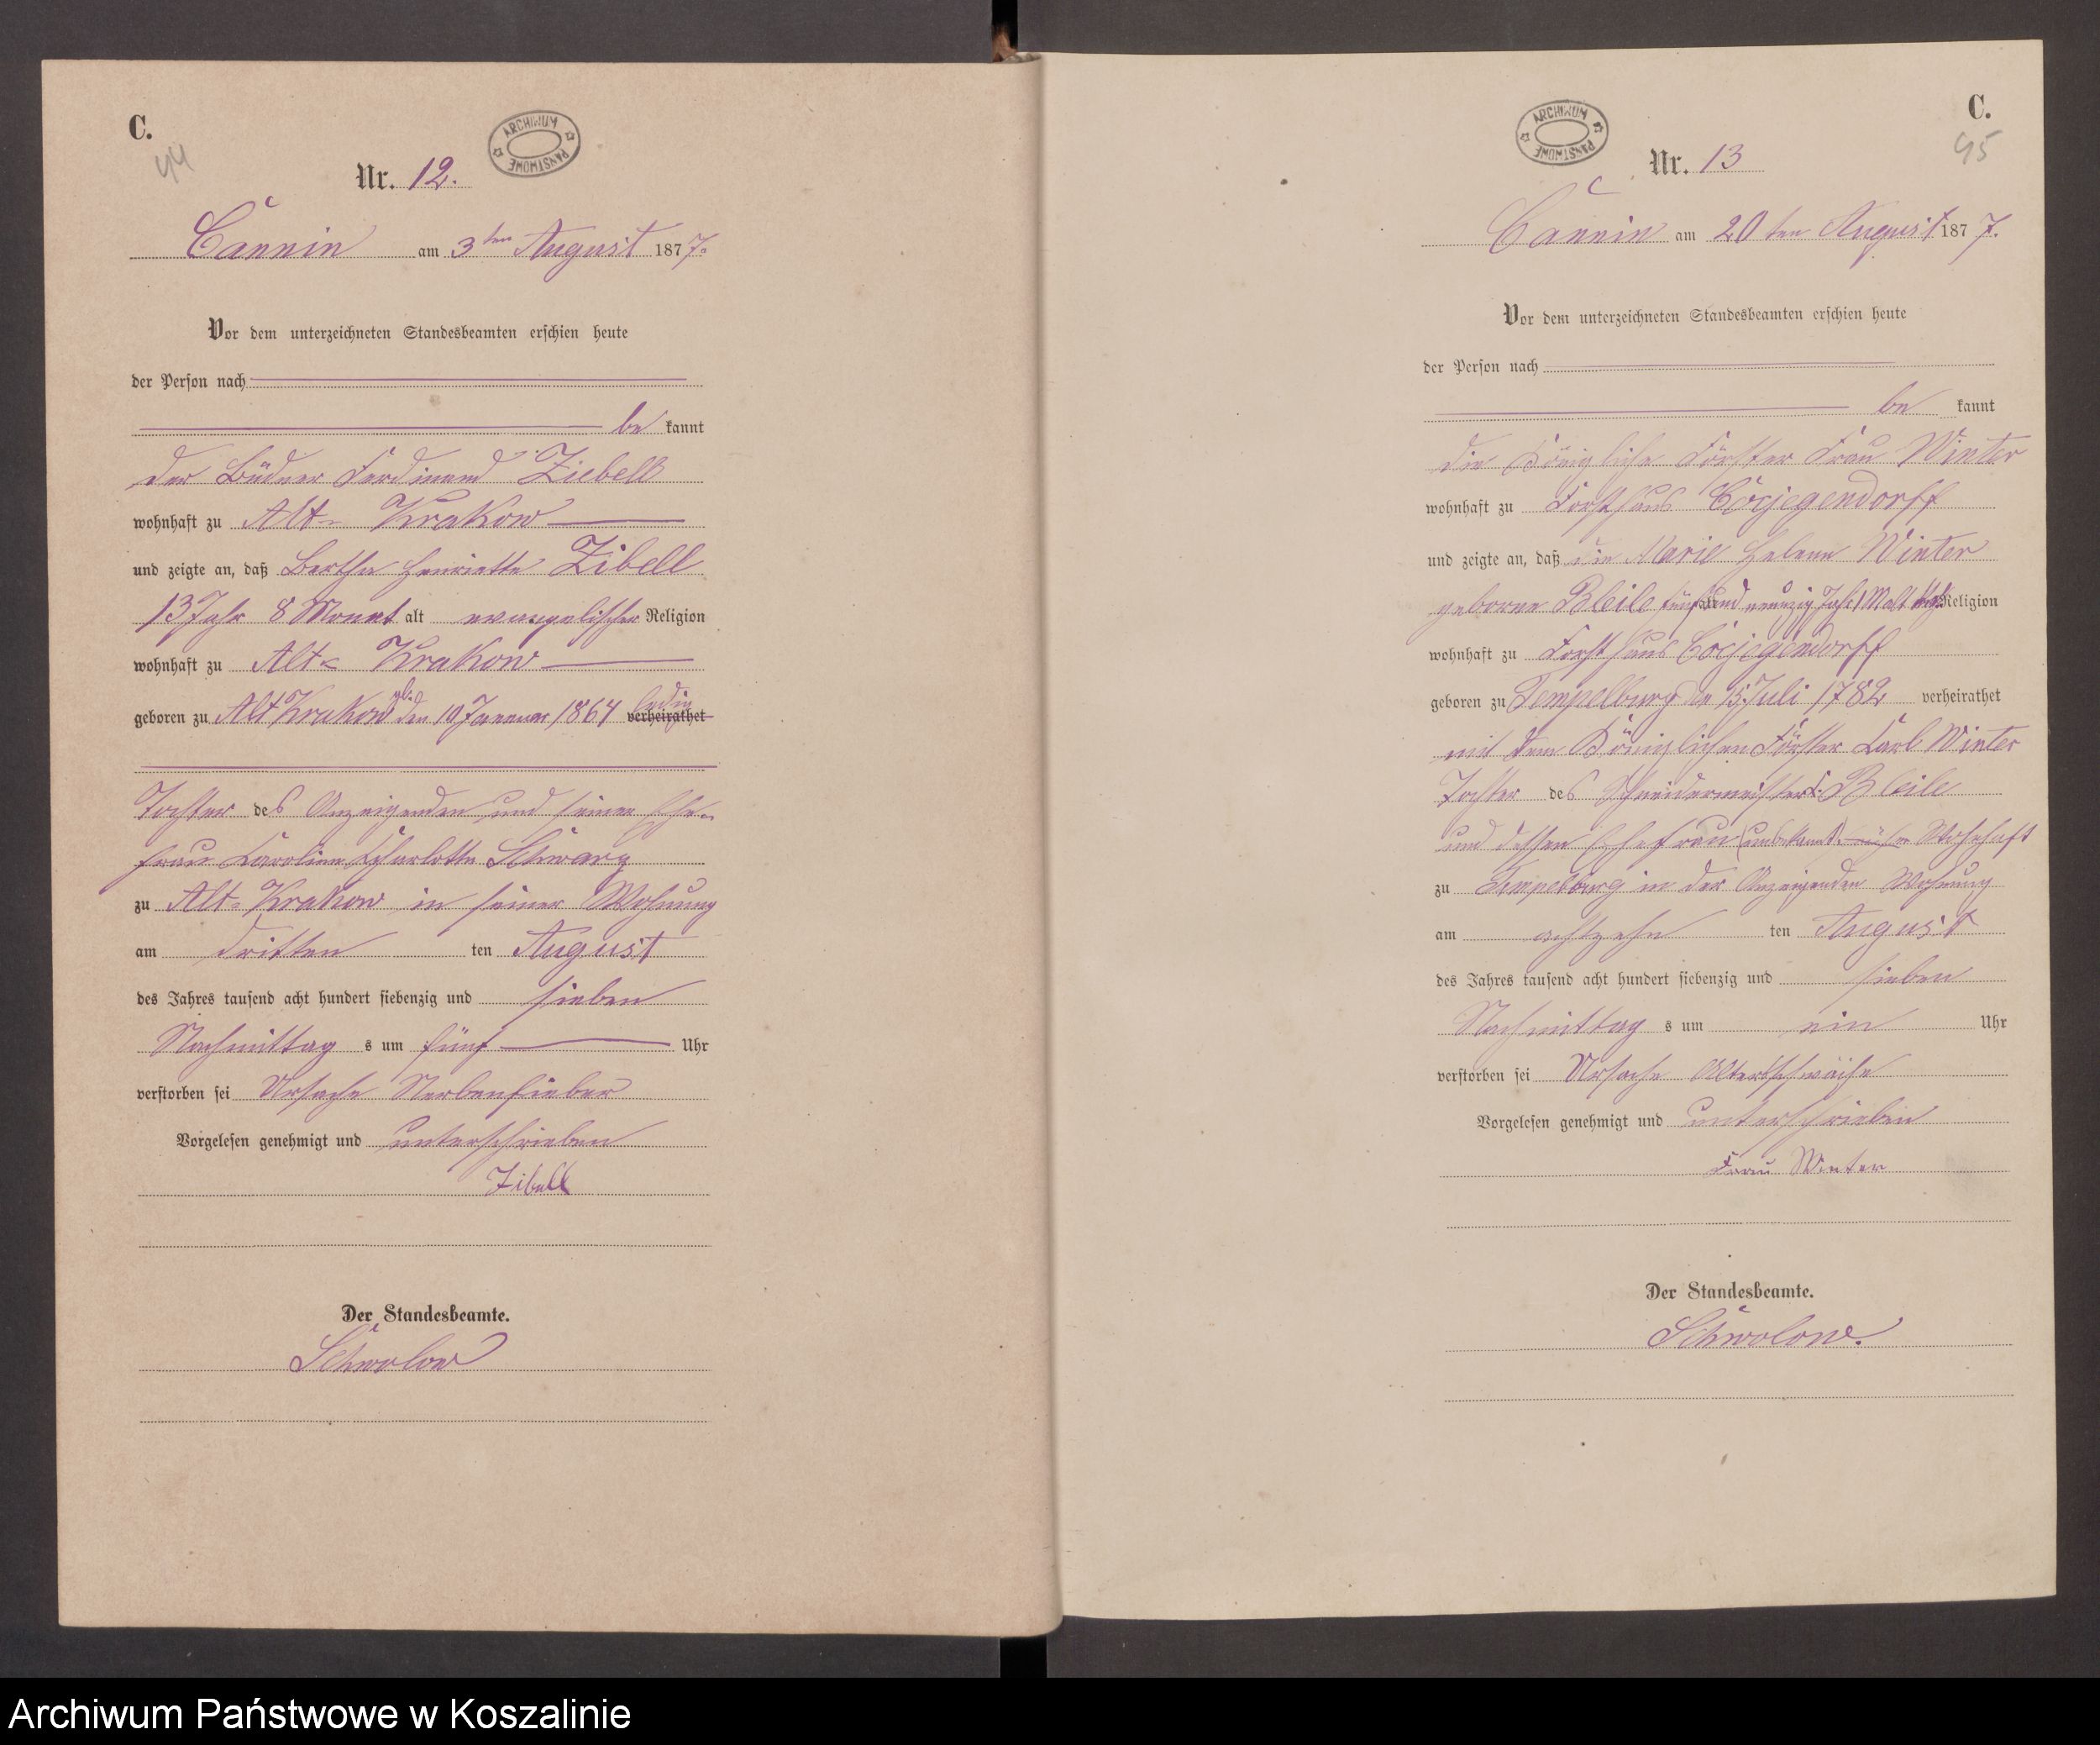 C.
44
ARCHIWUM PAŃSTWOWE
Nr. 12.
Cannin am 3ten August 1877.
Vor dem unterzeichneten Standesbeamten erschien heute
der Person nach
be kannt
der Büdner Ferdinand Ziebell
wohnhaft zu Alt- Krakow
und zeigte an, daß Bertha Henriette Zibell
13 Jahr 8 Monat alt evangelischer Religion
wohnhaft zu Alt- Krakow
geboren zu Alt Krakow den 19 Januar 1864 verheirathet ledig
Tochter des Anzeigenden und seiner Ehe-
frau Caroline Charlotte
zu Alt- Krakow in seiner Wohnung
am dritten ten August
des Jahres tausend acht hundert siebenzig und sieben
Nachmittag s um fünf Uhr
verstorben sei Ursache Nerbenfieber
Vorgelesen genehmigt und unterschrieben
Zibell
Der Standesbeamte.
Schwolow
C.
45
ARCHIWUM PAŃSTWOWE
Nr. 13
Cannin am 20 ten August 1877.
Vor dem unterzeichneten Standesbeamten erschien heute
der Person nach
be kannt
die Königliche Förster Frau Winter
wohnhaft zu Forsthaus
und zeigte an, daß die Marie Helene Winter
geborne Bleile fünf und neunzig Jahr 1 M alt Religion
wohnhaft zu Forsthaus
geboren zu Tempelburg den 15 Juli 1782 verheirathet
mit dem Königlichen Förster Carl Winter
Tochter des Schneidermeisters Bleile
und dessen Ehefrau (unbekannt) Wohnhaft
zu Tempelburg in der Anzeigenden Wohnung
am achtzehn ten August
des Jahres tausend acht hundert siebenzig und sieben
Nachmittag s um ein Uhr
verstorben sei Ursache Altersschwäche
Vorgelesen genehmigt und unterschrieben
Frau Winter
Der Standesbeamte.
Schwolow.
Archiwum Państwowe w Koszalinie